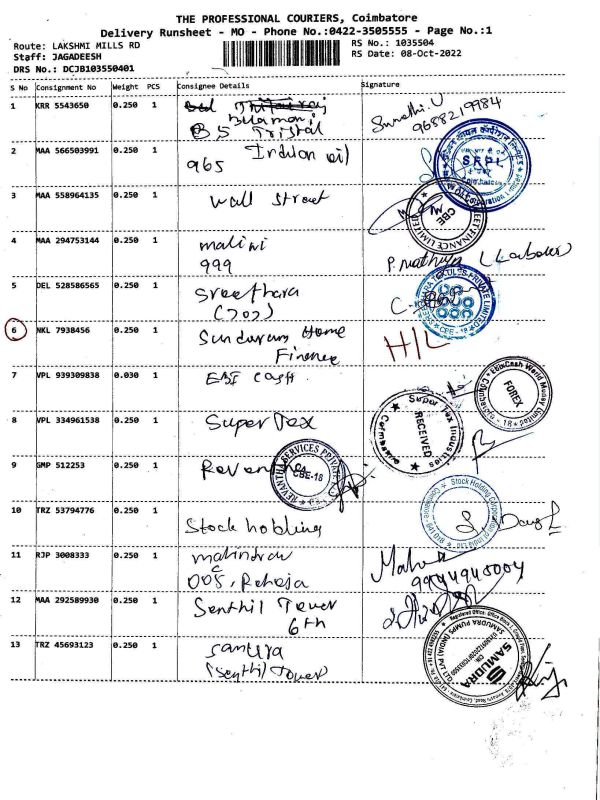 THE PROFESSIONAL COURIERS, Coimbatore
Delivery Runsheet - MO - Phone No.:0422-3505555 - Page No.:1
Route: LAKSHMI MILLS RD
RS No.: 1035504
Staff: JAGADEESH
RS Date: 08-Oct-2022
DRS No.: DCJB103550401
S No Consignment No Weight PCS Consignee Details Signature
1 KRR 5543650 0.250 1
B5 Tristal
9688219984
2 MAA 566503991 0.250 1 Indian oil
965
SRPL
3 MAA 558964135 0.250 1 Wall Street
CBE
4 MAA 294753144 0.250 1 malini
999
5 DEL 528586565 0.250 1 Sreedhara
(702)
6 NKL 7938456 0.250 1 Sundaram Home H/L
Finance
7 VPL 939309838 0.030 1 EBI Cash
EbixCash World Money Limited
FOREX
8 VPL 334961538 0.250 1 Super Tex
Super Tex Industries
RECEIVED
Coimbatore
9 GMP 512253 0.250 1 Revantha
REVANTHA SERVICES PRIVATE
CBE-18
10 TRZ 53794776 0.250 1
Stock holding
Stock Holding Corporation of India Ltd
11 RJP 3008333 0.250 1 mahindra
005, Raheja
9944945004
12 MAA 292589930 0.250 1 Senthil Tower
6th
13 TRZ 45693123 0.250 1 Samura
(Senthil Tower
SAMUDRA PUMPS (INDIA) PVT LTD
SAMUDRA